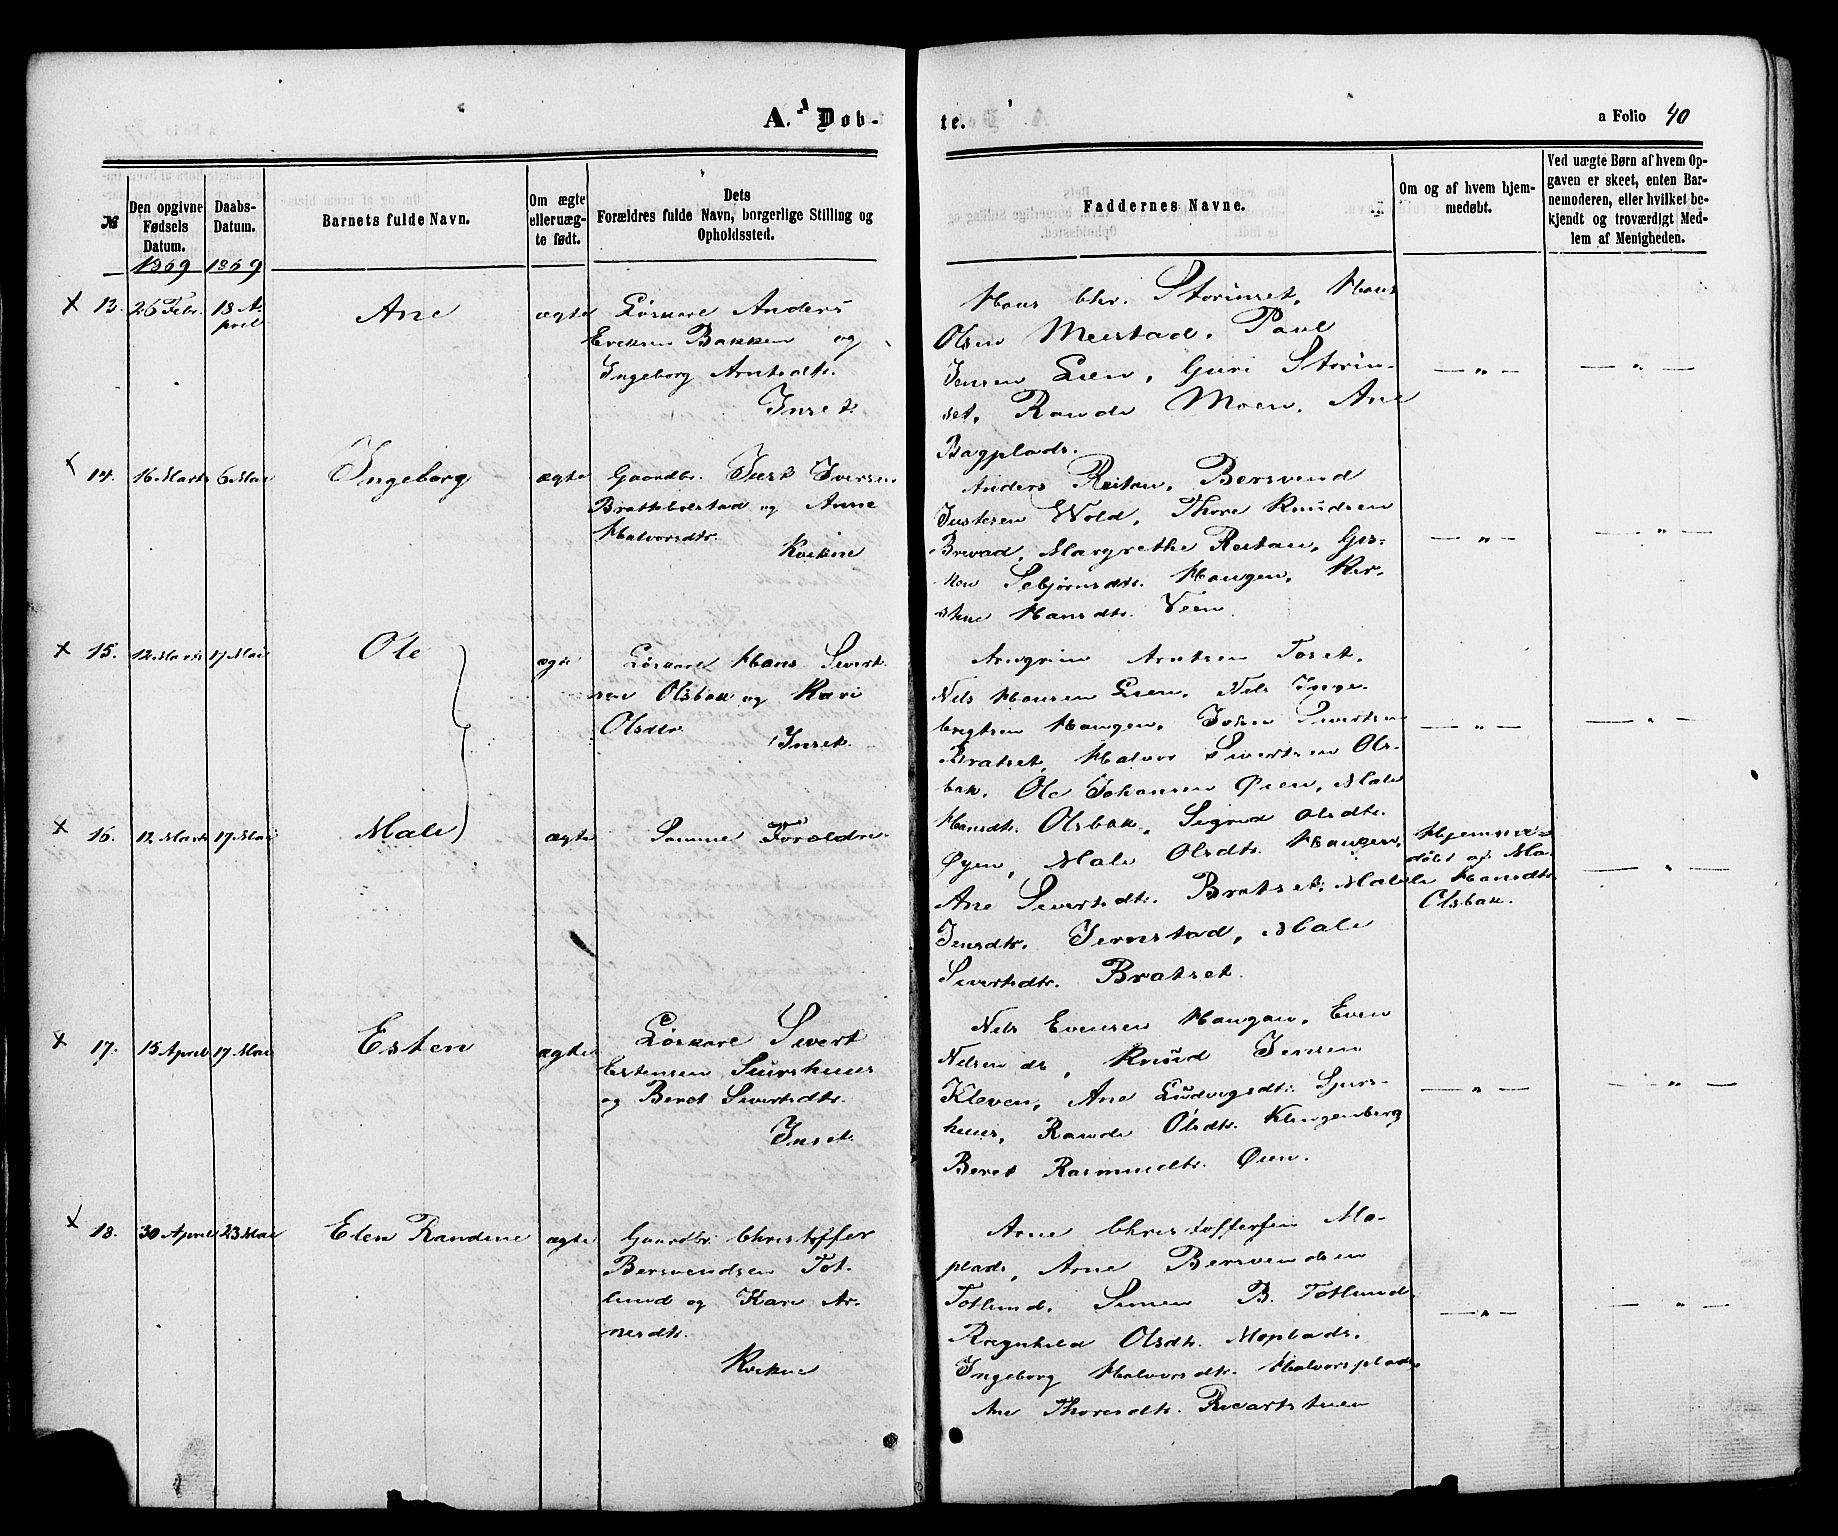 A. Døb-
te.
a Folio 40
№
Den opgivne Fødsels Datum.
Daabs-Datum.
Barnets fulde Navn.
Om ægte eller uægte født.
Dets Forældres fulde Navn, borgerlige Stilling og Opholdssted.
Faddernes Navne.
Om og af hvem hjemmedøbt.
Ved uægte Børn af hvem Opgaven er skeet, enten Barnemoderen, eller hvilket bekjendt og troværdigt Medlem af Menigheden.
1869 1869
13. 26 Febr. 18 April
Ane
ægte
Løskare Anders
Ericksen Bakken og
Ingeborg Arntsdtr.
Inset.
Hans Chr. Storinset, Hans
Olsen Meistad, Paul
Jensen Lien, Guri Storin-
set, Randi Moen, Ane
Bagplads.
— " —
— " —
14. 16 Marts 6 Mai
Ingeborg
ægte
Gaardbr. Just Iversen
Brattebolstad og Anne
Halvorsdtr.
Kvikne
Anders Reitan, Bersvend
Justesen Wold, Thore Knudsen
Brevad, Margrethe Reitan, Gis-
ken Sebjørnsdtr. Haugen, Kir-
stine Hansdtr. Veen.
— " —
— " —
15. 12 Marts 17 Mai
Ole
ægte
Løskare Hans Sivert
sen Olsbak og Kari
Olsdtr.
Inset.
Arngrim Arntsen Toset,
Nils Hansen Lien, Nils Inge-
brigtsen Haugen, John Sivertsen
Bratset, Halvor Sivertsen Ols-
bak, Ole Johansen Øien, Mali
Hansdtr. Olsbak, Sigrid Olsdtr.
— " —
— " —
16. 12 Marts 17 Mai
Mali
ægte
Samme Forældre
Øyen, Mali Olsdtr. Haugen,
Ane Sivertsdtr. Bratset, Mali
Jensdtr. Jernstad, Mali
Sivertsdtr. Bratset.
Hjemme-
døbt af Ma-
li Hansdtr.
Olsbak.
— " —
17. 15 April 17 Mai
Esten
ægte
Løskare Sivert
Estensen Sjurshuus
og Beret Sivertsdtr.
Inset.
Nils Evensen Haugan, Even
Nilsen ds, Knud Jensen
Kleven, Ane Ludvigsdtr. Sjurs-
huus, Randi Olsdtr. Klingenberg
Beret Rasmusdtr. Øien.
— " —
— " —
18. 30 April 23 Mai
Elen Randine
ægte
Gaardbr. Christoffer
Bersvendsen Tot-
lund og Kari Ar-
nesdtr.
Kvikne
Arne Christoffersen Mo-
plads, Arne Bersvendsen
Totlund, Simen B. Totlund,
Ragnhild Olsdtr. Moplads,
Ingeborg Halvorsdtr. Halvorsplads
Ane Thoresdtr.
— " —
— " —